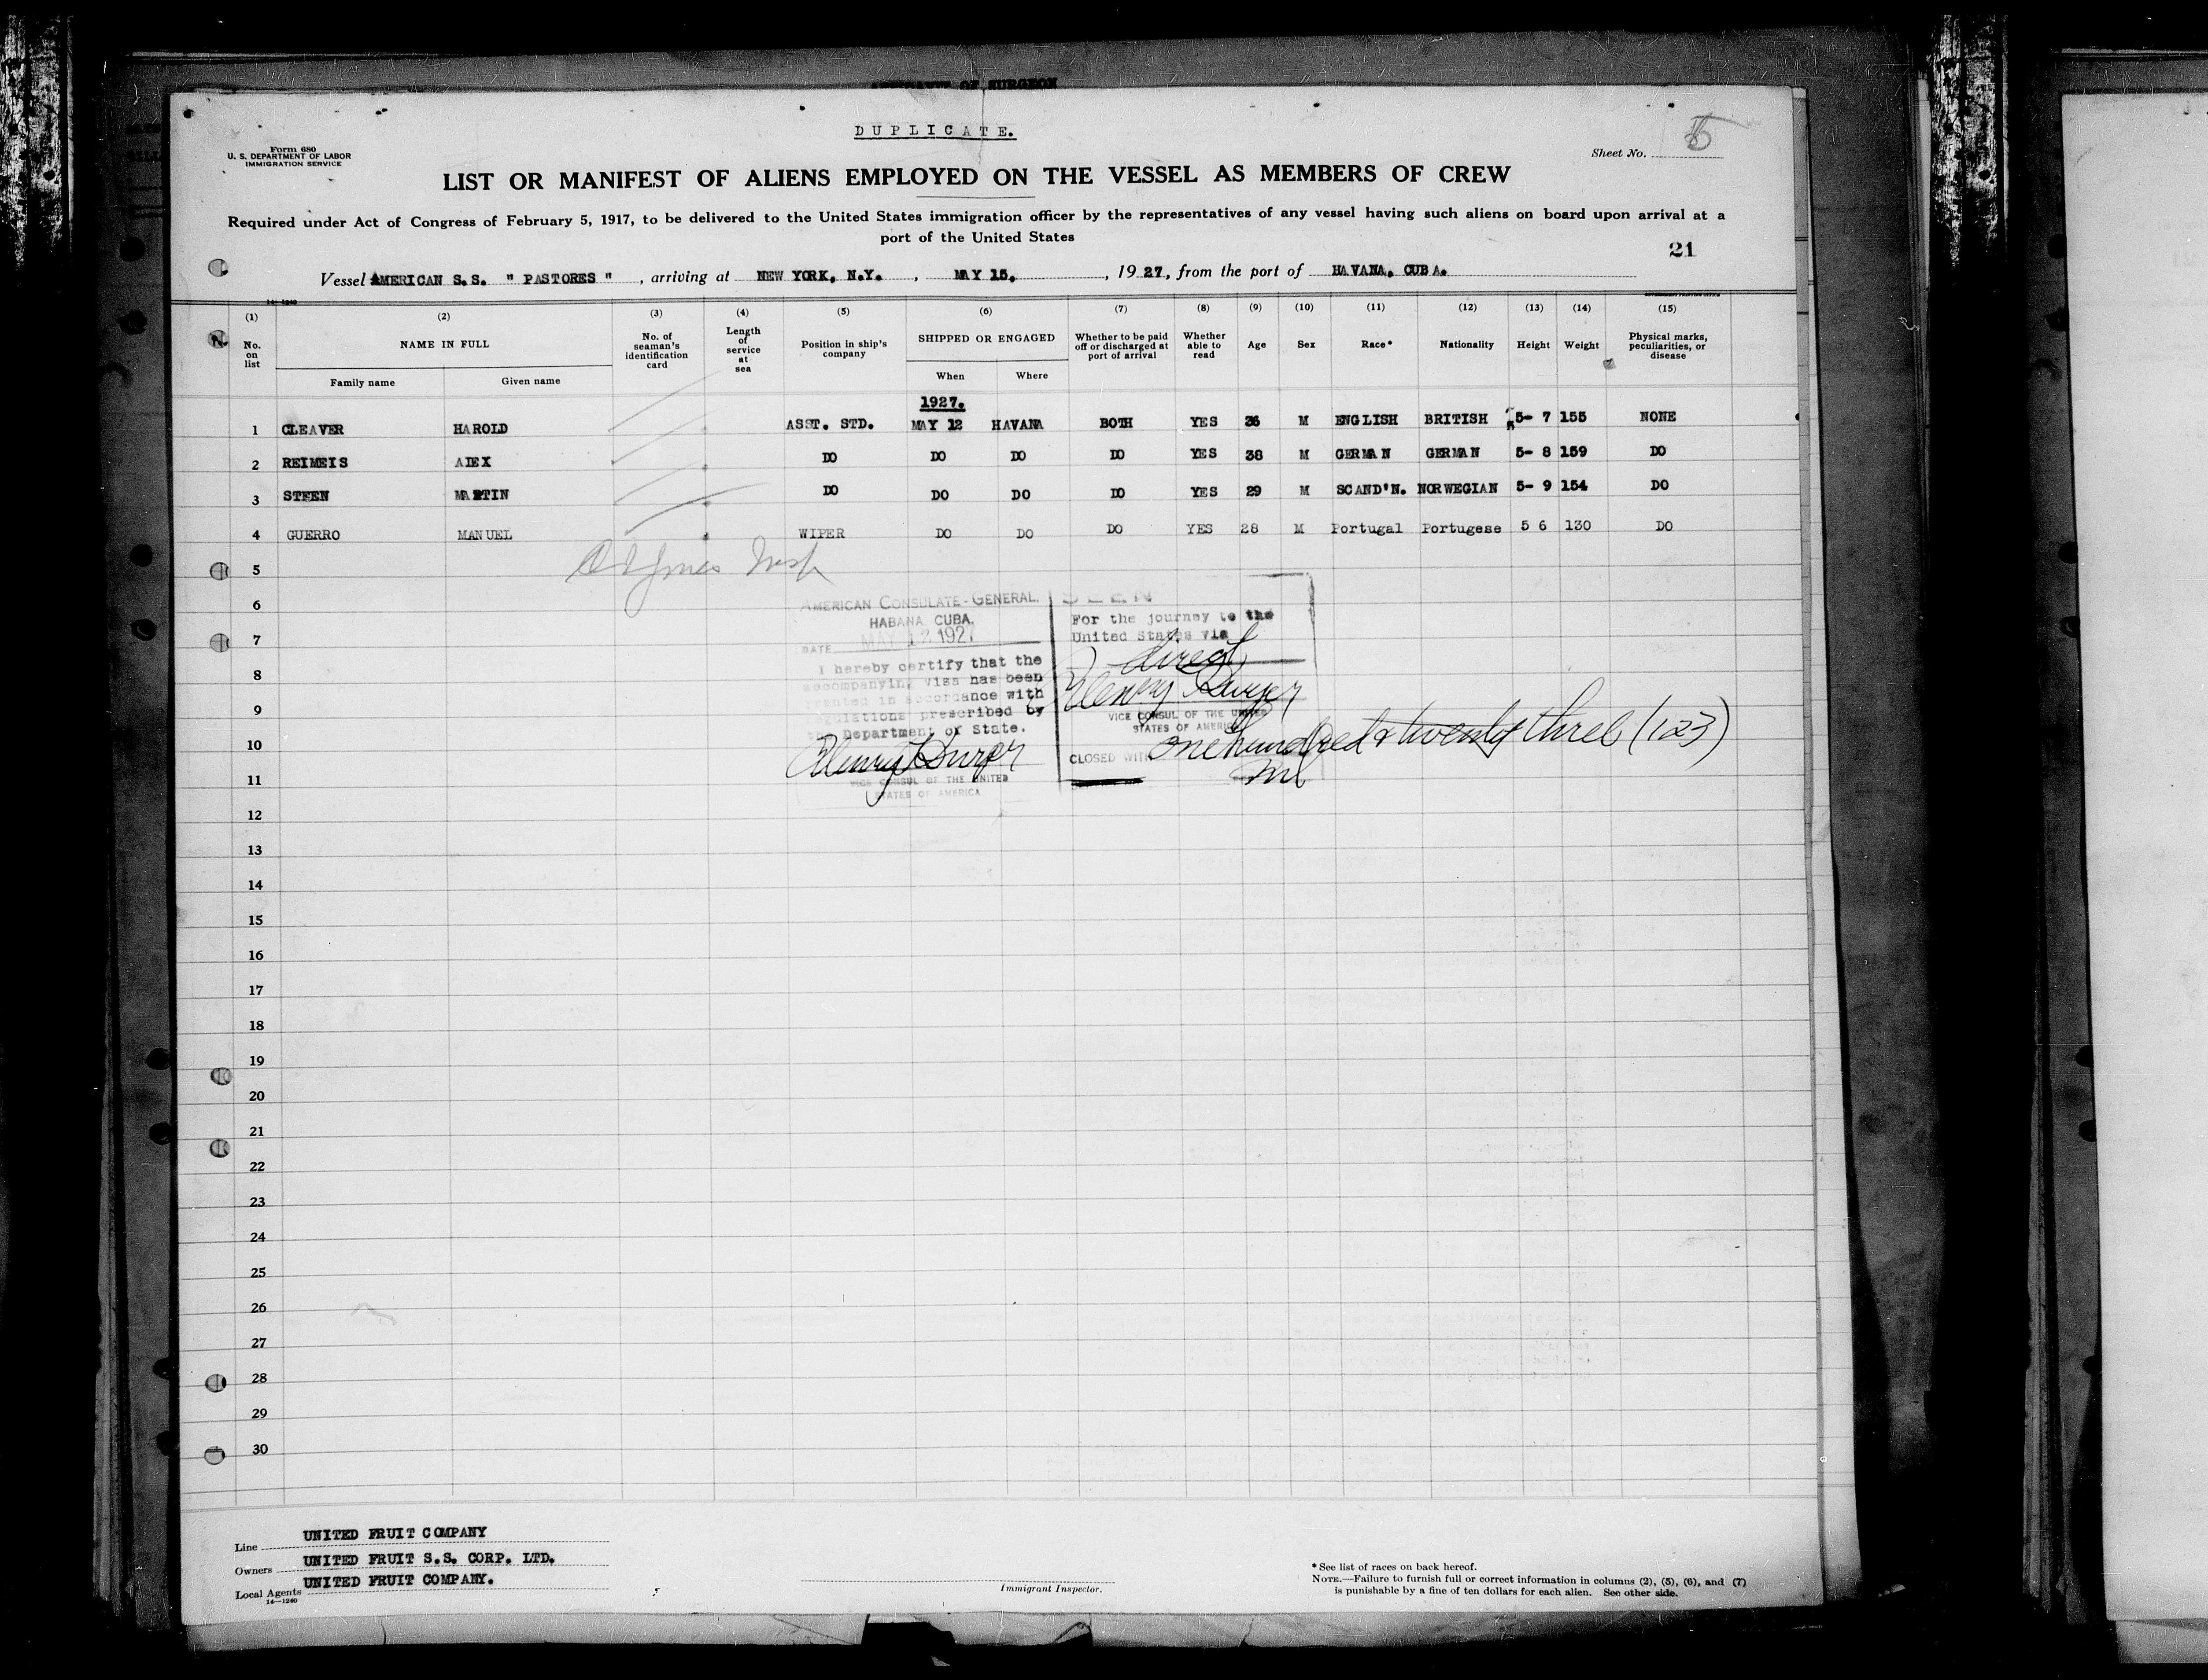 DUPLICATE.
Form 680
U. S. DEPARTMENT OF LABOR
IMMIGRATION SERVICE
Sheet No. 5
LIST OR MANIFEST OF ALIENS EMPLOYED ON THE VESSEL AS MEMBERS OF CREW
Required under Act of Congress of February 5, 1917, to be delivered to the United States immigration officer by the representatives of any vessel having such aliens on board upon arrival at a
port of the United States
21
Vessel AMERICAN S.S. " PASTORES " , arriving at NEW YORK, N.Y. , MAY 15. , 1927, from the port of HAVANA, CUBA.
(1) (2) (3) (4) (5) (6) (7) (8) (9) (10) (11) (12) (13) (14) (15)
No. on list NAME IN FULL No. of seaman's identification card Length of service at sea Position in ship's company SHIPPED OR ENGAGED Whether to be paid off or discharged at port of arrival Whether able to read Age Sex Race* Nationality Height Weight Physical marks, peculiarities, or disease
Family name Given name When Where
1927.
1 CLEAVER HAROLD ASST. STD. MAY 12 HAVANA BOTH YES 36 M ENGLISH BRITISH 5- 7 155 NONE
2 REIMEIS ALEX DO DO DO DO YES 38 M GERMAN GERMAN 5- 8 159 DO
3 STEEN MARTIN DO DO DO DO YES 29 M SCAND'N. NORWEGIAN 5- 9 154 DO
4 GUERRO MANUEL WIPER DO DO DO YES 28 M Portugal Portugese 5 6 130 DO
5
6
7
8
9
10
11
12
13
14
15
16
17
18
19
20
21
22
23
24
25
26
27
28
29
30
AMERICAN CONSULATE-GENERAL.
HABANA, CUBA.
DATE MAY 12 1927
I hereby certify that the
accompanying visa has been
granted in accordance with
regulations prescribed by
the Department of State.
VICE CONSUL OF THE UNITED
STATES OF AMERICA
SEEN
For the journey to the
United States via
direct
VICE CONSUL OF THE UNITED
STATES OF AMERICA
CLOSED WITH one hundred & twenty three (123)
Line UNITED FRUIT COMPANY
Owners UNITED FRUIT S.S. CORP. LTD.
Local Agents UNITED FRUIT COMPANY.
14—1240
Immigrant Inspector.
* See list of races on back hereof.
NOTE.—Failure to furnish full or correct information in columns (2), (5), (6), and (7)
is punishable by a fine of ten dollars for each alien. See other side.